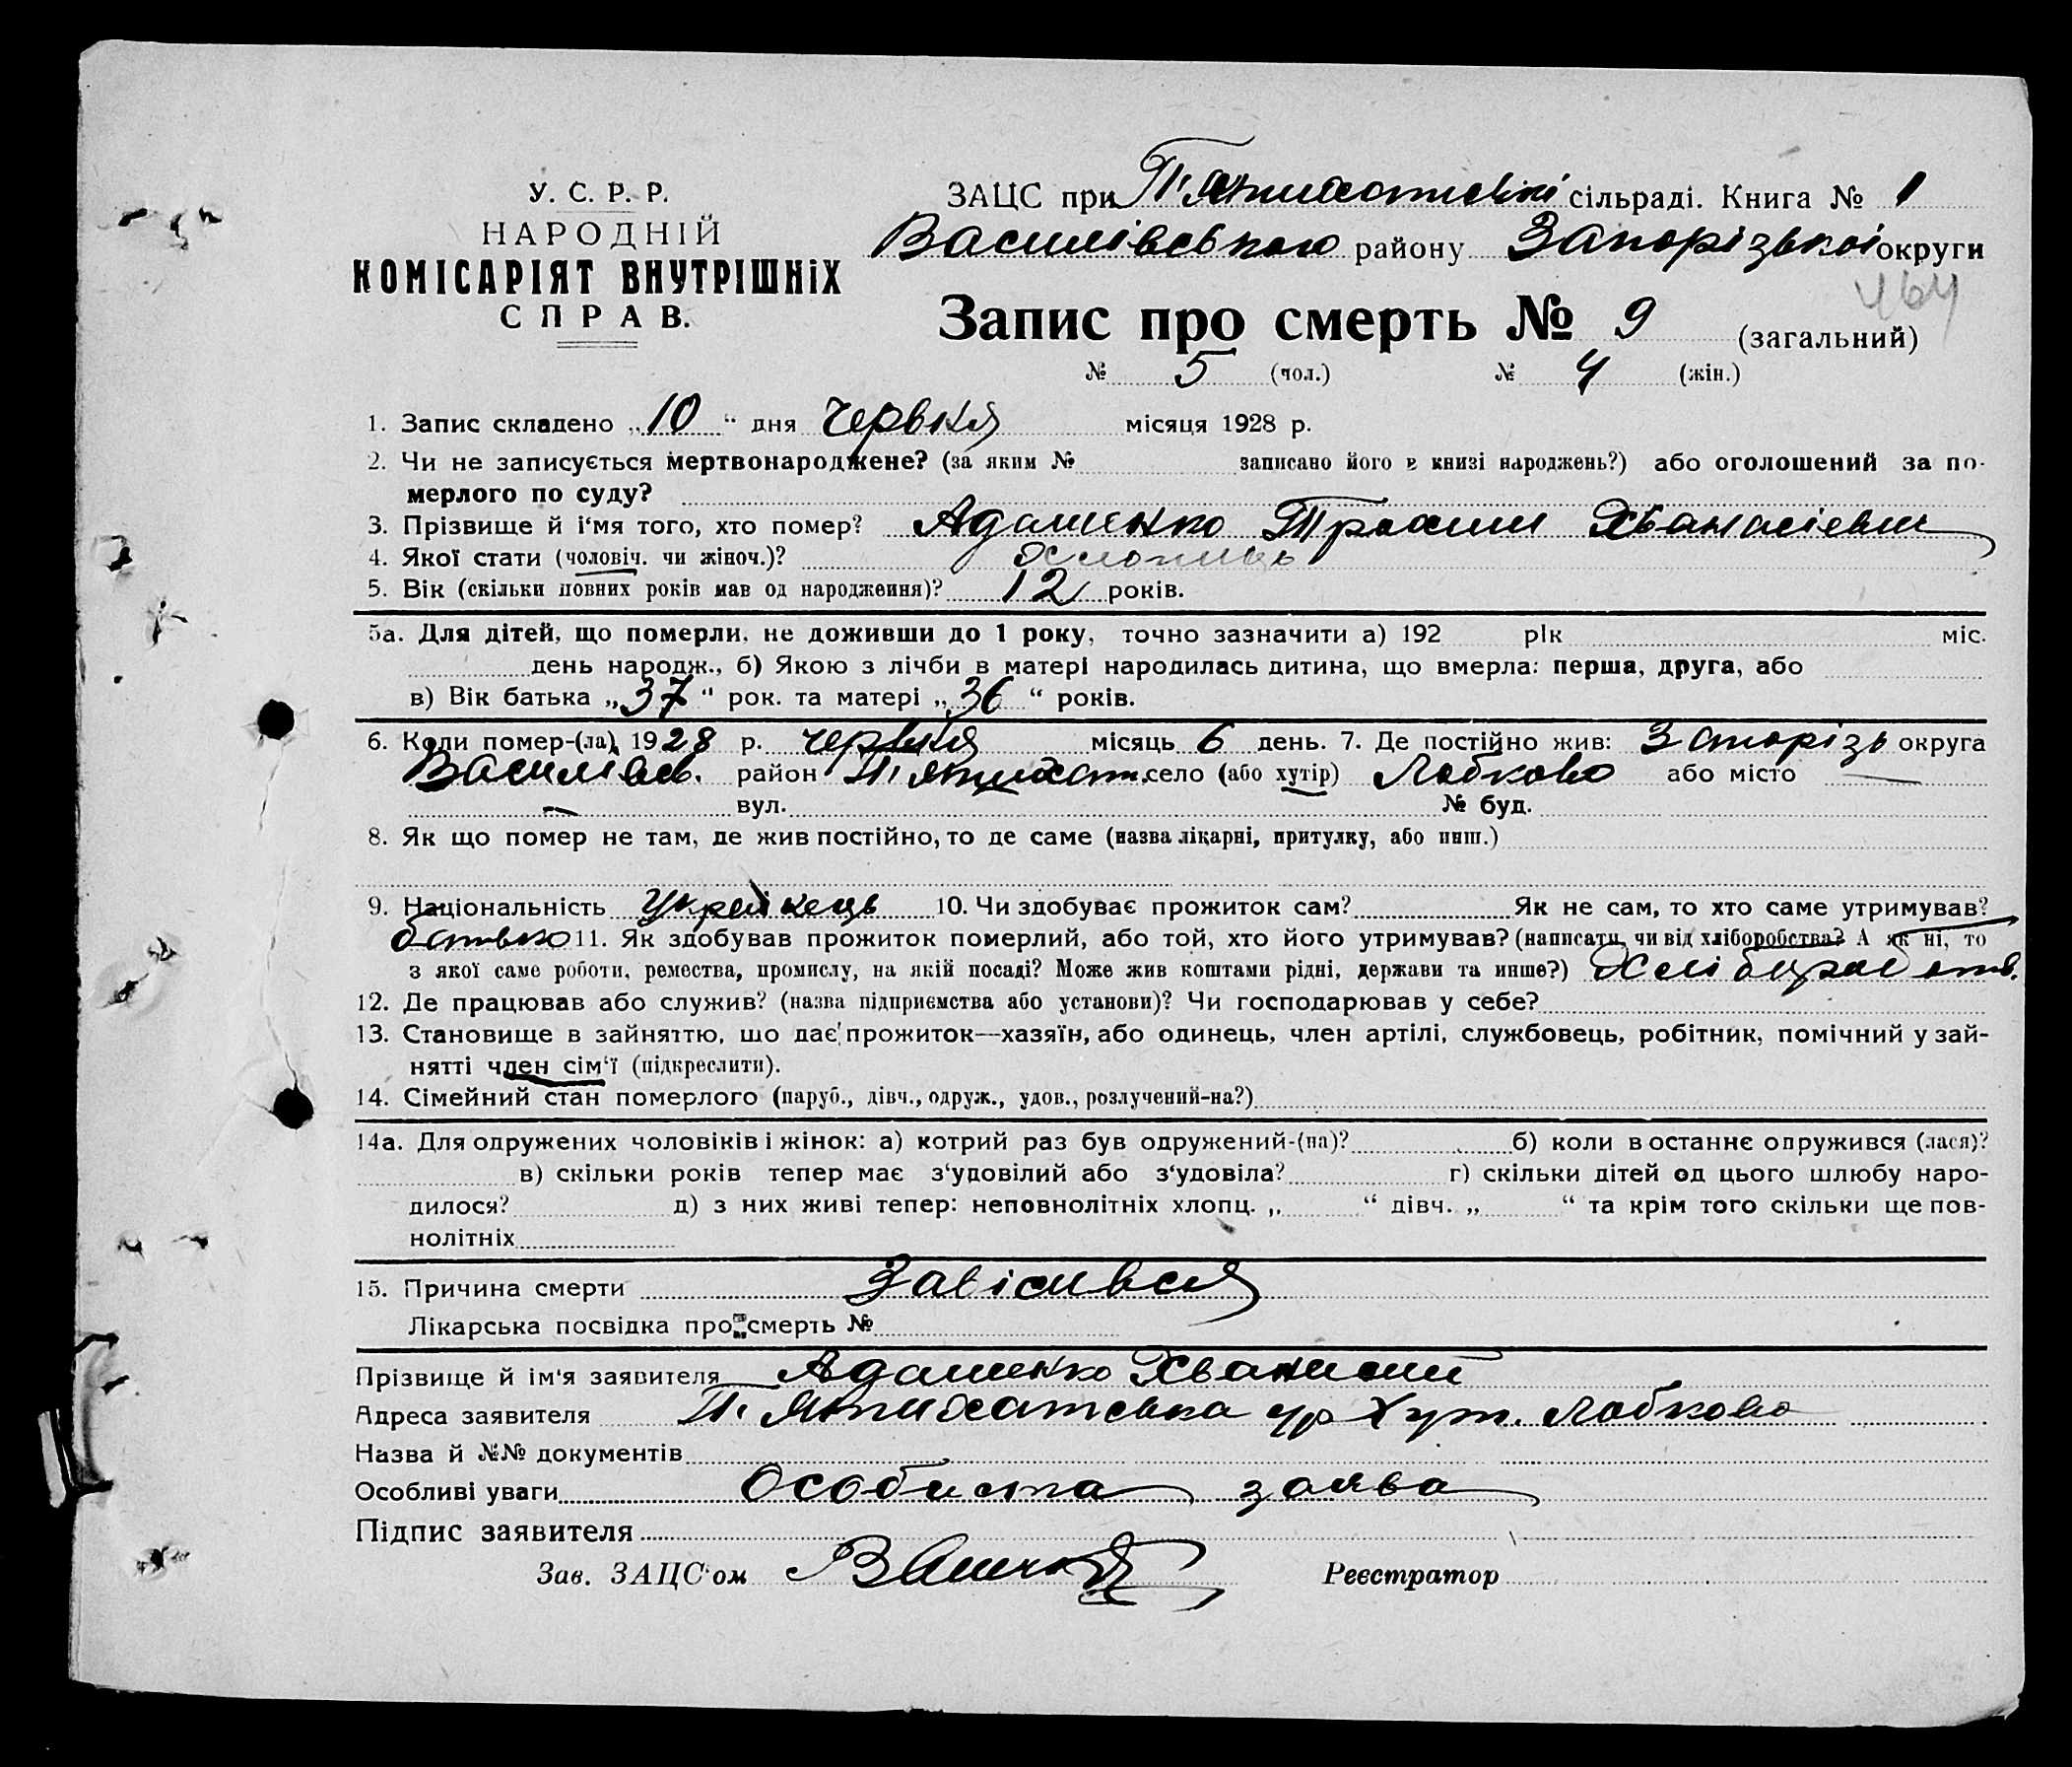 У. С. Р. Р.
НАРОДНІЙ
КОМІСАРІЯТ ВНУТРІШНІХ
СПРАВ.
ЗАЦС при П'ятихатській сільраді. Книга № 1
Василівського району Запорізької округи
464
Запис про смерть № 9 (загальний)
№ 5 (чол.) № 4 (жін.)
1. Запис складено „10“ дня червня місяця 1928 р.
2. Чи не записується мертвонароджене? (за яким № записано його в книзі народжень?) або оголошений за по-
мерлого по суду?
3. Прізвище й і'мя того, хто помер? Адаменко Трохим Хванасієвич
4. Якої стати (чоловіч. чи жіноч.)? Хлопиць
5. Вік (скільки повних років мав од народження)? 12 років.
5а. Для дітей, що померли, не доживши до 1 року, точно зазначити а) 192 рік міс.
день народж., б) Якою з лічби в матері народилась дитина, що вмерла: перша, друга, або
в) Вік батька „37“ рок. та матері „36“ років.
6. Коли помер-(ла) 1928 р. червня місяць 6 день. 7. Де постійно жив: Запорізь округа
Василівс. район П'ятихат. село (або хутір) Лобково або місто —
— вул. № буд.
8. Як що помер не там, де жив постійно, то де саме (назва лікарні, притулку, або инш.)
9. Національність Українець 10. Чи здобуває прожиток сам? Як не сам, то хто саме утримував?
батько 11. Як здобував прожиток померлий, або той, хто його утримував? (написати, чи від хліборобства? А як ні, то
з якої саме роботи, ремества, промислу, на якій посаді? Може жив коштами рідні, держави та инше?) Хлібороб
12. Де працював або служив? (назва підприємства або установи)? Чи господарював у себе?
13. Становище в зайняттю, що дає прожиток—хазяїн, або одинець, член артілі, службовець, робітник, помічний у зай-
нятті член сім'ї (підкреслити).
14. Сімейний стан померлого (паруб., дівч., одруж., удов., розлучений-на?)
14а. Для одружених чоловіків і жінок: а) котрий раз був одружений-(на)? б) коли востаннє одружився (лася)?
в) скільки років тепер має з'удовілий або з'удовіла? г) скільки дітей од цього шлюбу наро-
дилося? д) з них живі тепер: неповнолітніх хлопц. „ “ дівч. „ “ та крім того скільки ще пов-
нолітніх
15. Причина смерти Завісився
Лікарська посвідка про смерть №
Прізвище й ім'я заявителя Адаменко Хванасий
Адреса заявителя П'ятихатська с/р Хут. Лобково
Назва й №№ документів
Особливі уваги Особиста заява
Підпис заявителя
Зав. ЗАЦС'ом Реєстратор